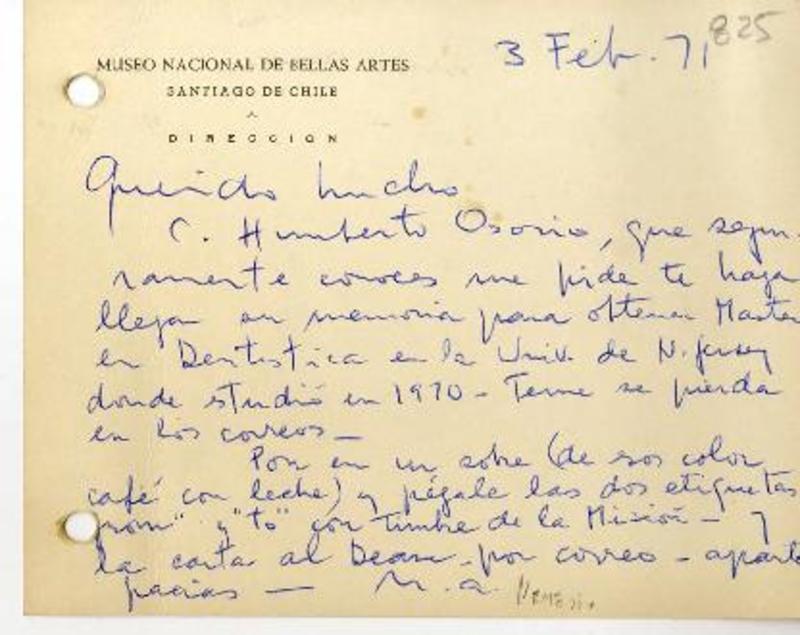 825
MUSEO NACIONAL DE BELLAS ARTES
SANTIAGO DE CHILE
DIRECCION
3 Feb. 71
Querido Lucho
C. Humberto Osorio, que segu-
ramente conoces me pide te haga
llegar su memoria para obtener Master
en Dentistica en la Univ. de N. Jersey
donde estudió en 1970 - Teme se pierda
en los correos -
Pon en un sobre (de esos color
café con leche) y pégale las dos etiquetas
"from" y "to" con timbre de la Misión - y
la carta al Dean - por correo - aparte
gracias - N. a.